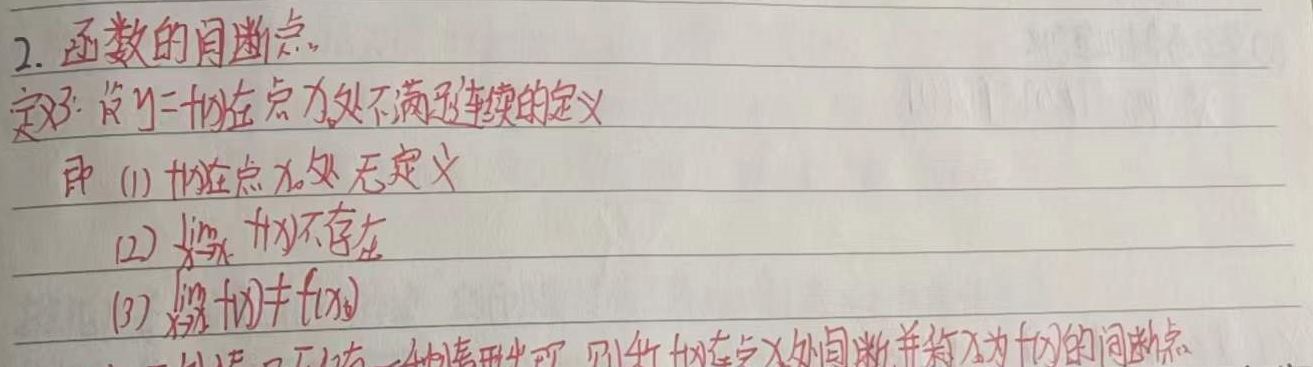 2. 函数的间断点。
定义3: 设 y=f(x)在点 x₀处不满足连续的定义
即 (1) f(x)在点 x₀处 无定义
(2) lim x→x₀ f(x)不存在
(3) lim x→x₀ f(x)≠f(x₀)
情形出现 则称 f(x)在点x₀处间断并称x₀为f(x)的间断点